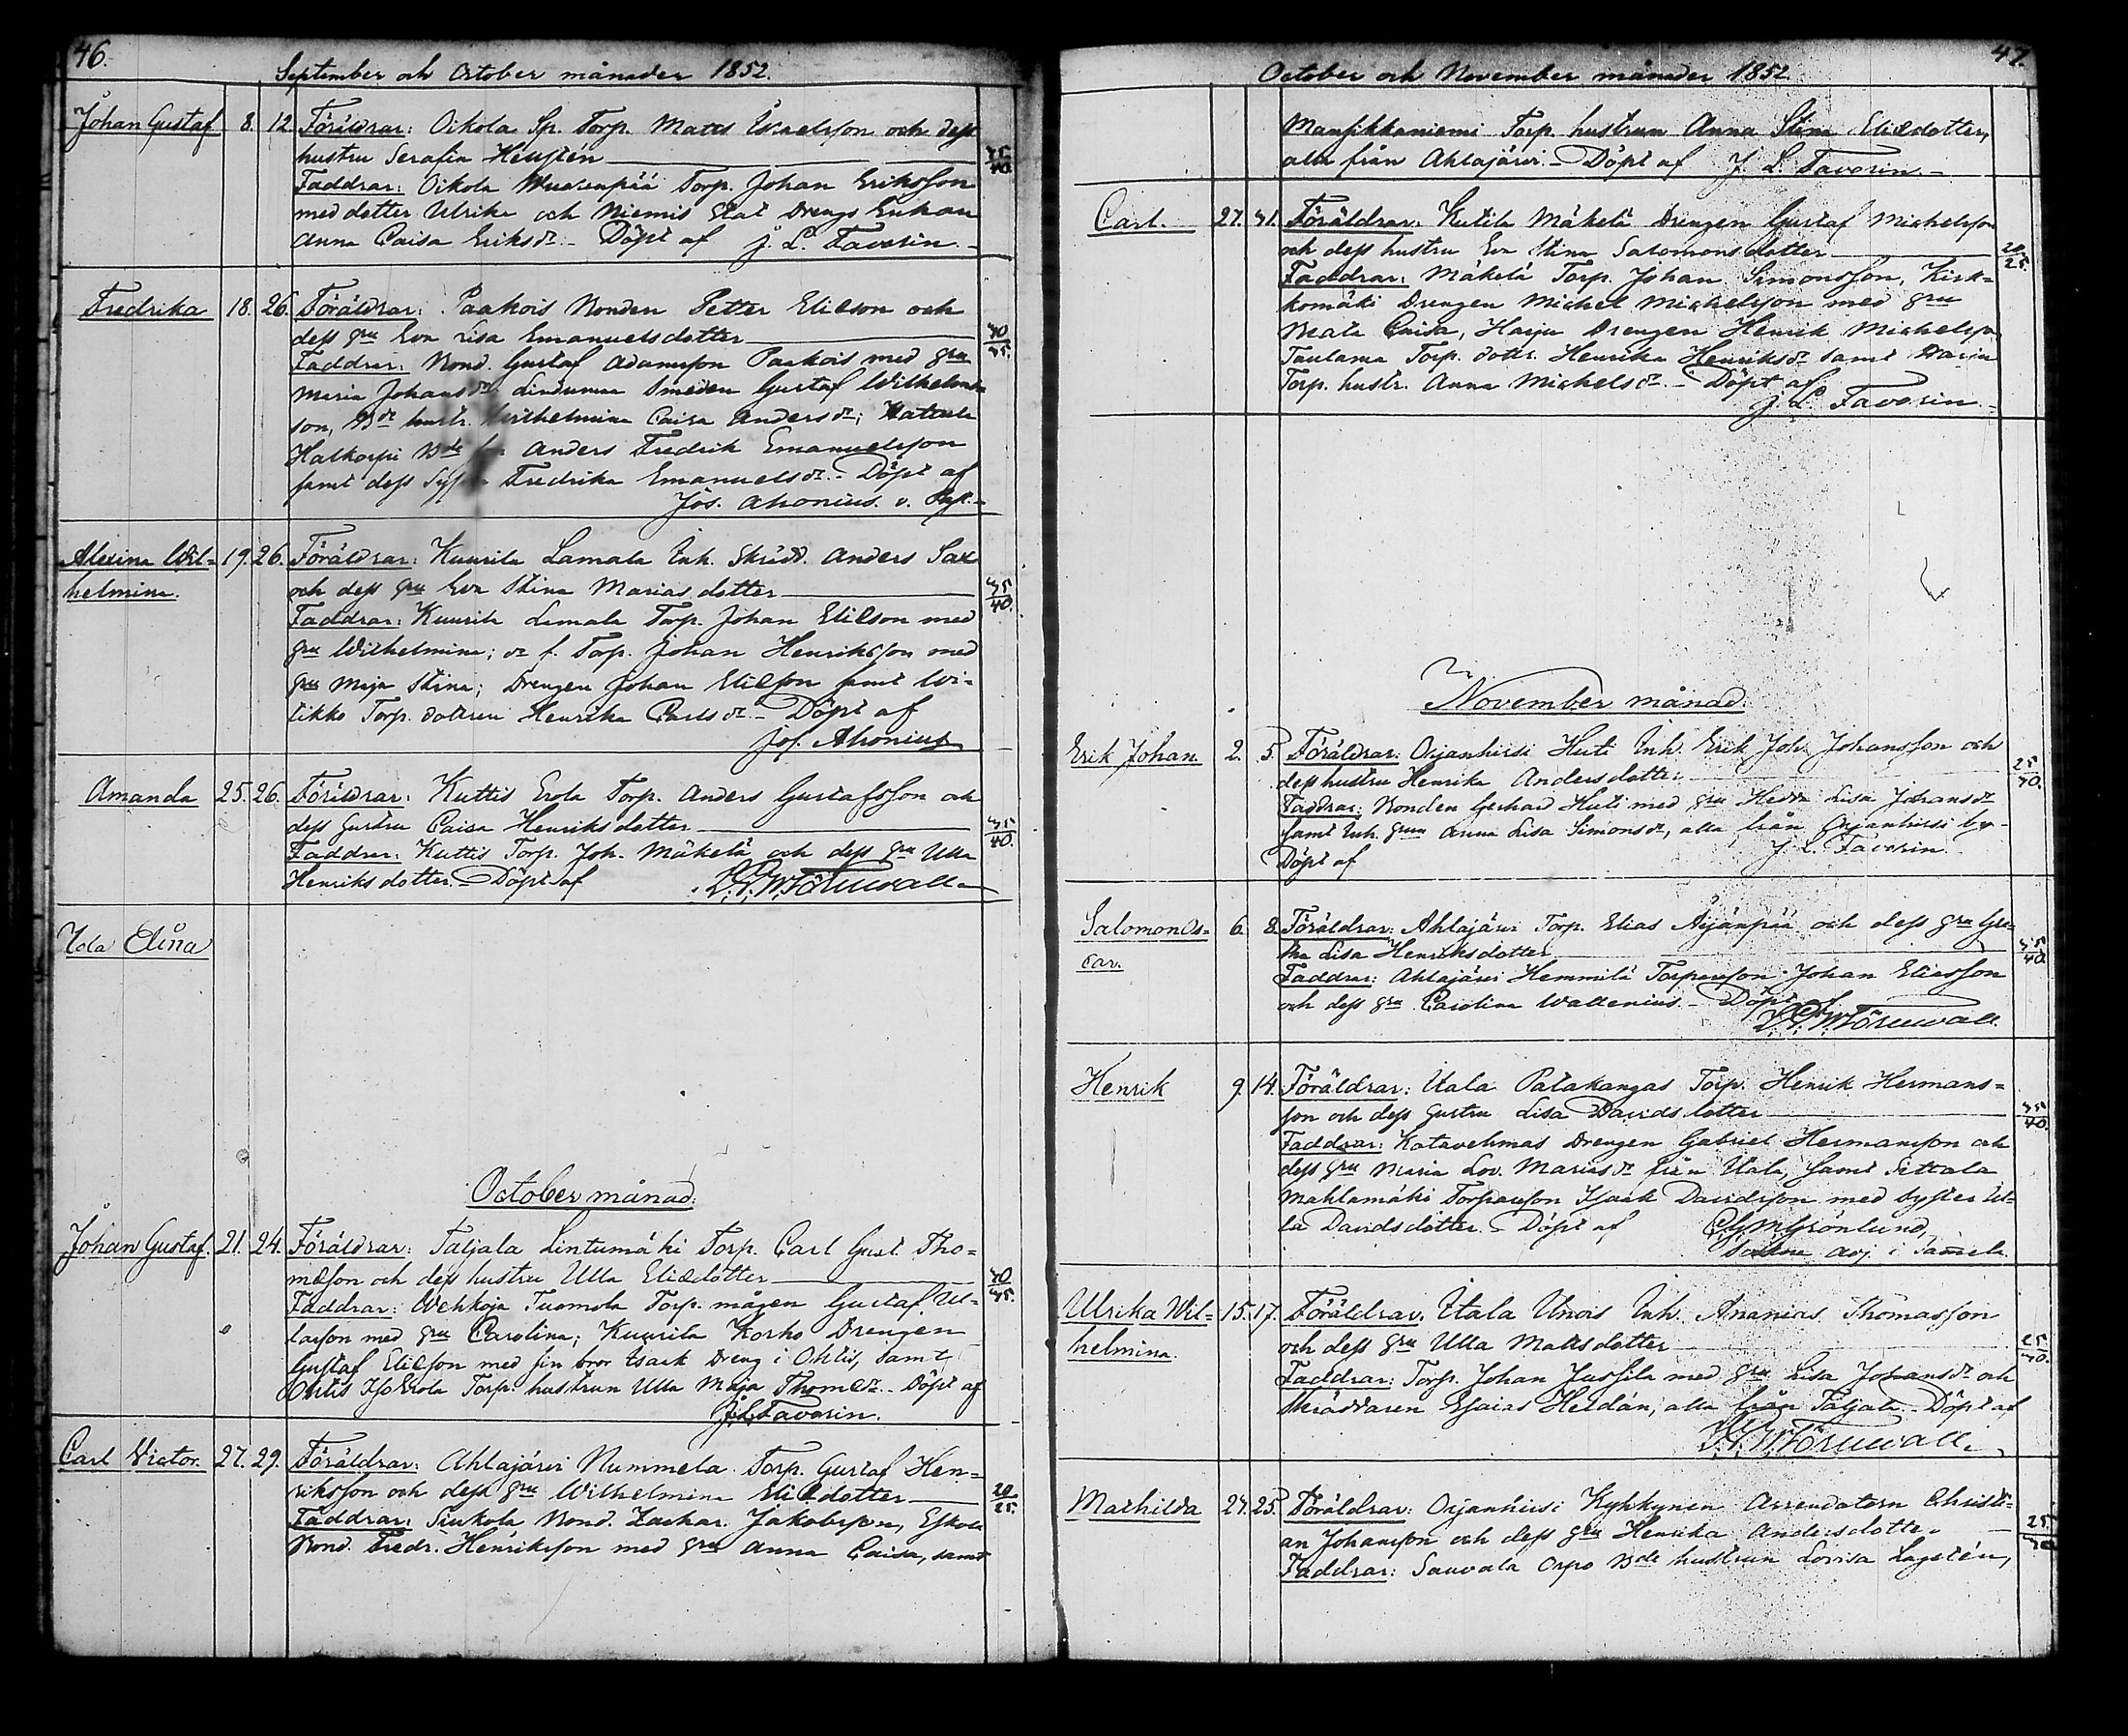 46.
September och October månader 1852.
Johan Gustaf 8. 12. Föräldrar: Oikola Sp. Torp. Matts Israelsson och dess
hustru Serafia 35/40
Faddrar: Oikola Torp. Johan Eriksson
med dotter Ulrika och Niemis Stat Drengs Enkan
Anna Caisa Eriksdr. – Döpt af J. L. Favorin. –
Fredrika 18. 26. Föräldrar: Paakois Bonden Petter Eliesson och
dess hru Eva Lisa Emanuelsdotter 40/45.
Faddrar: Bond. Gustaf Adamsson Paakois med hru
Maria Johansdr. Smeden Gustaf Wilhelms
son, hustr. Wilhelmina Caisa Andersdr.;
Anders Fredrik Emanuelsson
samt dess Fredrika Emanuelsdr. – Döpt af
Jos. Ahonius. v. –
Alexina Wil= 19. 26. Föräldrar: Kuurila Lamala Inh. Skrädd. Anders
helmina. och dess hru Eva Stina Mariasdotter 35/40.
Faddrar: Kuurila Lamala Torp. Johan Eliesson med
hru Wilhelmina; dr f. Torp. Johan Henriksson med
hru Maja Stina; Drengen Johan Eliesson samt Wi=
tikko Torp. dottren Henrika Carlsdr. – Döpt af
Jos. Ahonius
Amanda 25. 26. Föräldrar: Kuttis Erola Torp. Anders Gustafsson och
dess hustru Caisa Henriksdotter 35/40.
Faddrar: Kuttis Torp. Joh. Mäkelä och dess hru Ulla
Henriksdotter. – Döpt af Törnwall
Ida Elina
October månad.
Johan Gustaf. 21. 24. Föräldrar: Taljala Lintumäki Torp. Carl Gust. Tho=
masson och dess hustru Ulla Eliedotter 40/45.
Faddrar: Wehkoja Tuomola Torp. mågen Gustaf
med hru Carolina; Kuurila Korho Drengen
Gustaf Eliesson med sin bror Isaak Dreng i Ohtis, samt
Ohtis Torp. hustrun Ulla Maja – Döpt af
J. L. Favorin.
Carl Victor. 27. 29. Föräldrar: Ahlajärvi Nummela Torp. Gustaf Hen=
riksson och dess hru Wilhelmina Eliedotter 20/25.
Faddrar: Sinkola Bond. Zachar. Jakobsson, Eskola
Bond. Fredr. Henriksson med hru Anna Caisa, samt
47.
October och November månader 1852
Mansikkaniemi Torp. hustrun Anna Stina Eliedotter,
alla från Ahlajärvi. – Döpt af J. L. Favorin. –
Carl. 27. 31. Föräldrar: Kutila Mäkelä Drengen Gustaf Michelsson
och dess hustru Eva Stina Salomonsdotter 20/25.
Faddrar: Mäkelä Torp. Johan Simonsson, Kirk=
komäki Drengen Michel Michelsson med hru
Beata Caisa, Harju Drengen Henrik Michelsson,
Taulama Torp. dottr. Henrika Henriksdr. samt Harju
Torp. hustr. Anna Michelsdr. – Döpt af
J. L. Favorin. –
November månad.
Erik Johan. 2. 5. Föräldrar: Orjanhirsi Huti Inh. Erik Joh. Johansson och
dess hustru Henrika Andersdotter 25/30.
Faddrar: Bonden Gerhard Huti med hru Hedda Lisa Johansdr
samt Inh. hrun Anna Lisa Simonsdr, alla från Orjanhirsi by. –
Döpt af J. L. Favorin.
Salomon Os= 6. 8. Föräldrar: Ahlajärvi Torp. Elias Äijänpää och dess hru
car. Lisa Henriksdotter 35/40.
Faddrar: Ahlajärvi Hemmilä Torparsson Johan Eliasson
och dess hru Carolina Wallenius. – Döpt af
Törnwall.
Henrik 9. 14. Föräldrar: Utala Patakangas Torp. Henrik Hermans=
son och dess hustru Lisa Davidsdotter 35/40.
Faddrar: Katavehmas Drengen Gabriel Hermansson och
dess hru Maria Lov. Mariasdr från Utala, samt
Mahlamäki Torparsson Isaak Davidsson med syster Ul=
la Davidsdotter. – Döpt af Grönlund,
Sockne adj. i
Ulrika Wil= 15. 17. Föräldrar. Utala Unois Inh. Ananias Thomasson
helmina. och dess hru Ulla Mattsdotter 25/30.
Faddrar: Torp. Johan Jussila med hru Lisa Johansdr. och
Skräddaren Esaias Heldán, alla från Taljala. – Döpt af
Törnwall.
Mathilda 24. 25. Föräldrar: Orjanhirsi Kyhkynen Arrendatorn Christi=
an Johansson och dess hru Henrika Andersdotter 25/30
Faddrar: Sauvala Orpo Bde hustrun Lovisa Lagstén,